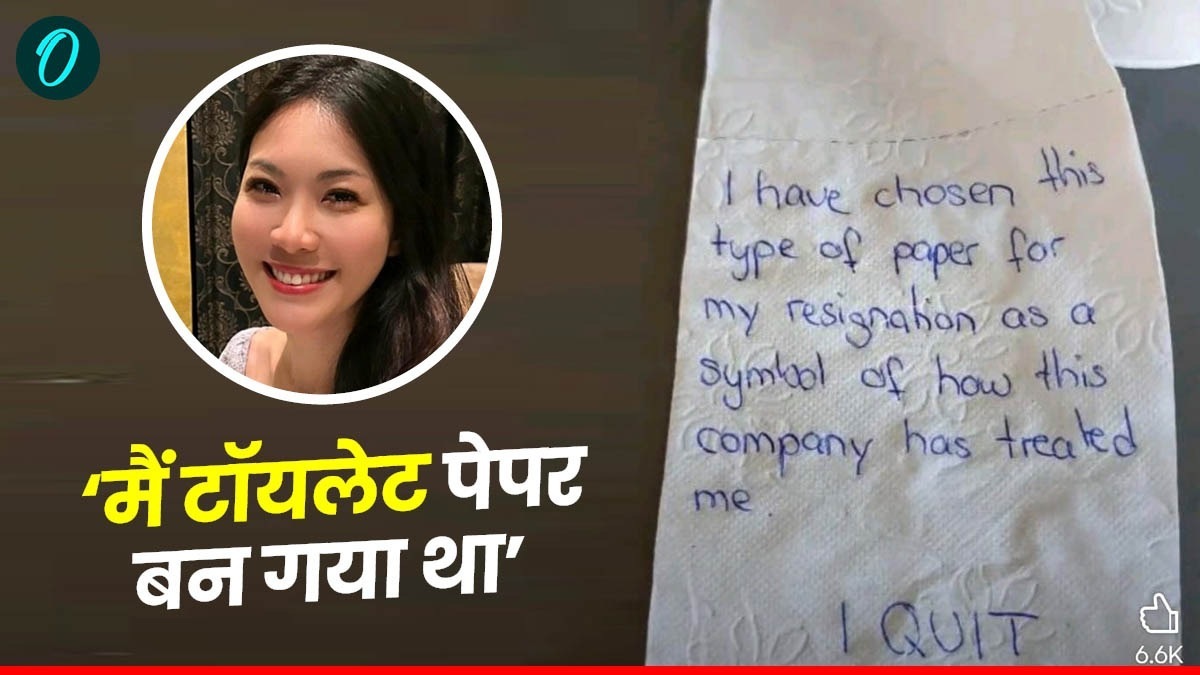 O
‘मैं टॉयलेट पेपर
बन गया था’
I have chosen this
type of paper for
my resignation as a
symbol of how this
company has treated
me.
I QUIT
6.6K